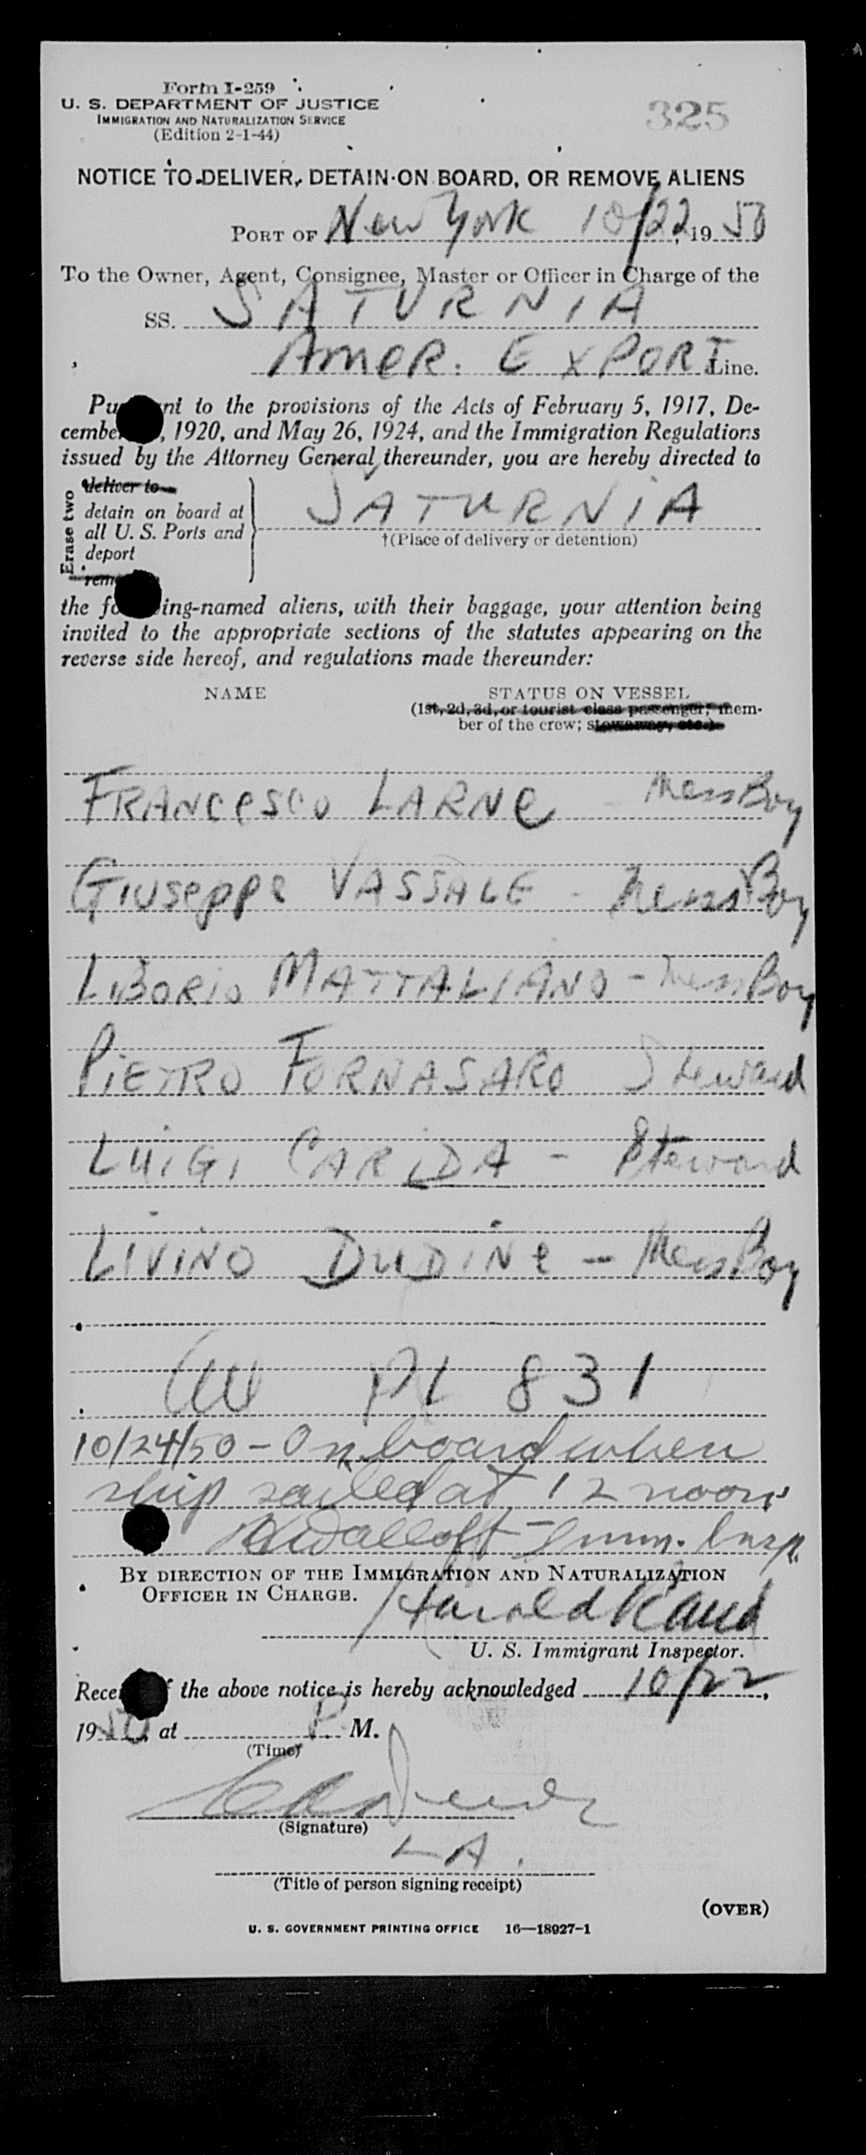 Form I-259
U. S. DEPARTMENT OF JUSTICE
IMMIGRATION AND NATURALIZATION SERVICE
(Edition 2-1-44)
325
NOTICE TO DELIVER, DETAIN ON BOARD, OR REMOVE ALIENS
PORT OF New York 10/22, 19 50
To the Owner, Agent, Consignee, Master or Officer in Charge of the
SS. SATURNIA
AMER. EXPORT Line.
Pu nt to the provisions of the Acts of February 5, 1917, De-
cembe , 1920, and May 26, 1924, and the Immigration Regulations
issued by the Attorney General thereunder, you are hereby directed to
Erase two
deliver to
detain on board at
all U. S. Ports and
deport
rem
SATURNIA
†(Place of delivery or detention)
the fo ing-named aliens, with their baggage, your attention being
invited to the appropriate sections of the statutes appearing on the
reverse side hereof, and regulations made thereunder:
NAME STATUS ON VESSEL
(1st, 2d, 3d, or tourist class passenger; mem-
ber of the crew; stowaway, etc.)
FRANCESCO LARNE - Mess Boy
GIUSEPPE VASSALE - Mess Boy
LIBORIO MATTALIANO - Mess Boy
PIETRO FORNASARO Steward
LUIGI CARIDA - Steward
LIVINO DUDINE - Mess Boy
All PL 831
10/24/50 - On board when
ship sailed at 12 noon
- Imm. Insp.
BY DIRECTION OF THE IMMIGRATION AND NATURALIZATION
OFFICER IN CHARGE.
Harold
U. S. Immigrant Inspector.
Rece f the above notice is hereby acknowledged 10/22,
19 50, at P. M.
(Time)
(Signature)
LA.
(Title of person signing receipt)
(OVER)
U. S. GOVERNMENT PRINTING OFFICE 16—18927-1